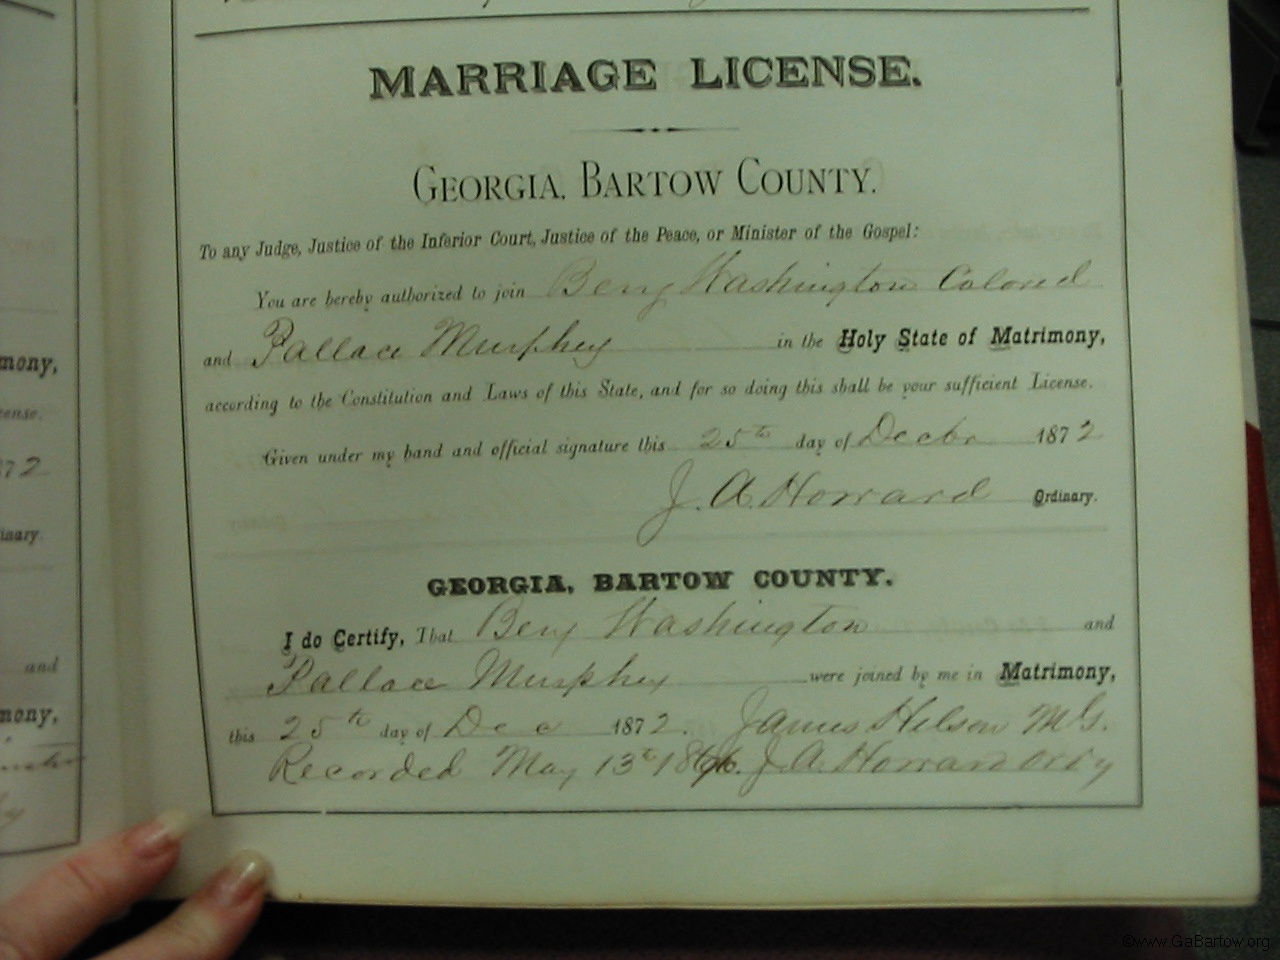 MARRIAGE LICENSE.
GEORGIA, BARTOW COUNTY.
To any Judge, Justice of the Inferior Court, Justice of the Peace, or Minister of the Gospel:
You are hereby authorized to join Benj Washington Colored
and Pallace Murphey in the Holy State of Matrimony,
according to the Constitution and Laws of this State, and for so doing this shall be your sufficient License.
Given under my hand and official signature this 25th day of Decbr 1872
J. A. Howard Ordinary.
GEORGIA, BARTOW COUNTY.
I do Certify, That Benj Washington and
Pallace Murphey were joined by me in Matrimony,
this 25th day of Dec 1872. James Hilson M G.
Recorded May 13th J. A. Howard Ordy
mony,
cense.
72
inary.
and
mony,
©www.GaBartow.org